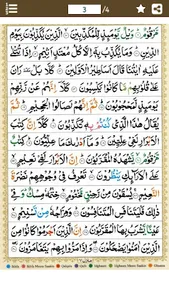 3 /4
مَّرْقُوْمٌ ۝ وَيْلٌ يَّوْمَئِذٍ لِّلْمُكَذِّبِيْنَ ۝ الَّذِيْنَ يُكَذِّبُوْنَ بِيَوْمِ
الدِّيْنِ ۝ وَمَا يُكَذِّبُ بِهٖٓ اِلَّا كُلُّ مُعْتَدٍ اَثِيْمٍ ۝ اِذَا تُتْلٰى
عَلَيْهِ اٰيٰتُنَا قَالَ اَسَاطِيْرُ الْاَوَّلِيْنَ ۝ كَلَّا بَلْ رَانَ
عَلٰى قُلُوْبِهِمْ مَّا كَانُوْا يَكْسِبُوْنَ ۝ كَلَّآ اِنَّهُمْ عَنْ رَّبِّهِمْ
يَوْمَئِذٍ لَّمَحْجُوْبُوْنَ ۝ ثُمَّ اِنَّهُمْ لَصَالُوا الْجَحِيْمِ ۝ ثُمَّ
يُقَالُ هٰذَا الَّذِيْ كُنْتُمْ بِهٖ تُكَذِّبُوْنَ ۝ كَلَّآ اِنَّ كِتٰبَ
الْاَبْرَارِ لَفِيْ عِلِّيِّيْنَ ۝ وَمَآ اَدْرٰىكَ مَا عِلِّيُّوْنَ ۝ كِتٰبٌ
مَّرْقُوْمٌ ۝ يَّشْهَدُهُ الْمُقَرَّبُوْنَ ۝ اِنَّ الْاَبْرَارَ لَفِيْ نَعِيْمٍ ۝
عَلَى الْاَرَآئِكِ يَنْظُرُوْنَ ۝ تَعْرِفُ فِيْ وُجُوْهِهِمْ نَضْرَةَ
النَّعِيْمِ ۝ يُسْقَوْنَ مِنْ رَّحِيْقٍ مَّخْتُوْمٍ ۝ خِتٰمُهٗ مِسْكٌ وَفِيْ
ذٰلِكَ فَلْيَتَنَافَسِ الْمُتَنَافِسُوْنَ ۝ وَمِزَاجُهٗ مِنْ تَسْنِيْمٍ ۝
عَيْنًا يَّشْرَبُ بِهَا الْمُقَرَّبُوْنَ ۝ اِنَّ الَّذِيْنَ اَجْرَمُوْا كَانُوْا مِنَ
الَّذِيْنَ اٰمَنُوْا يَضْحَكُوْنَ ۝ وَاِذَا مَرُّوْا بِهِمْ يَتَغَامَزُوْنَ ۝